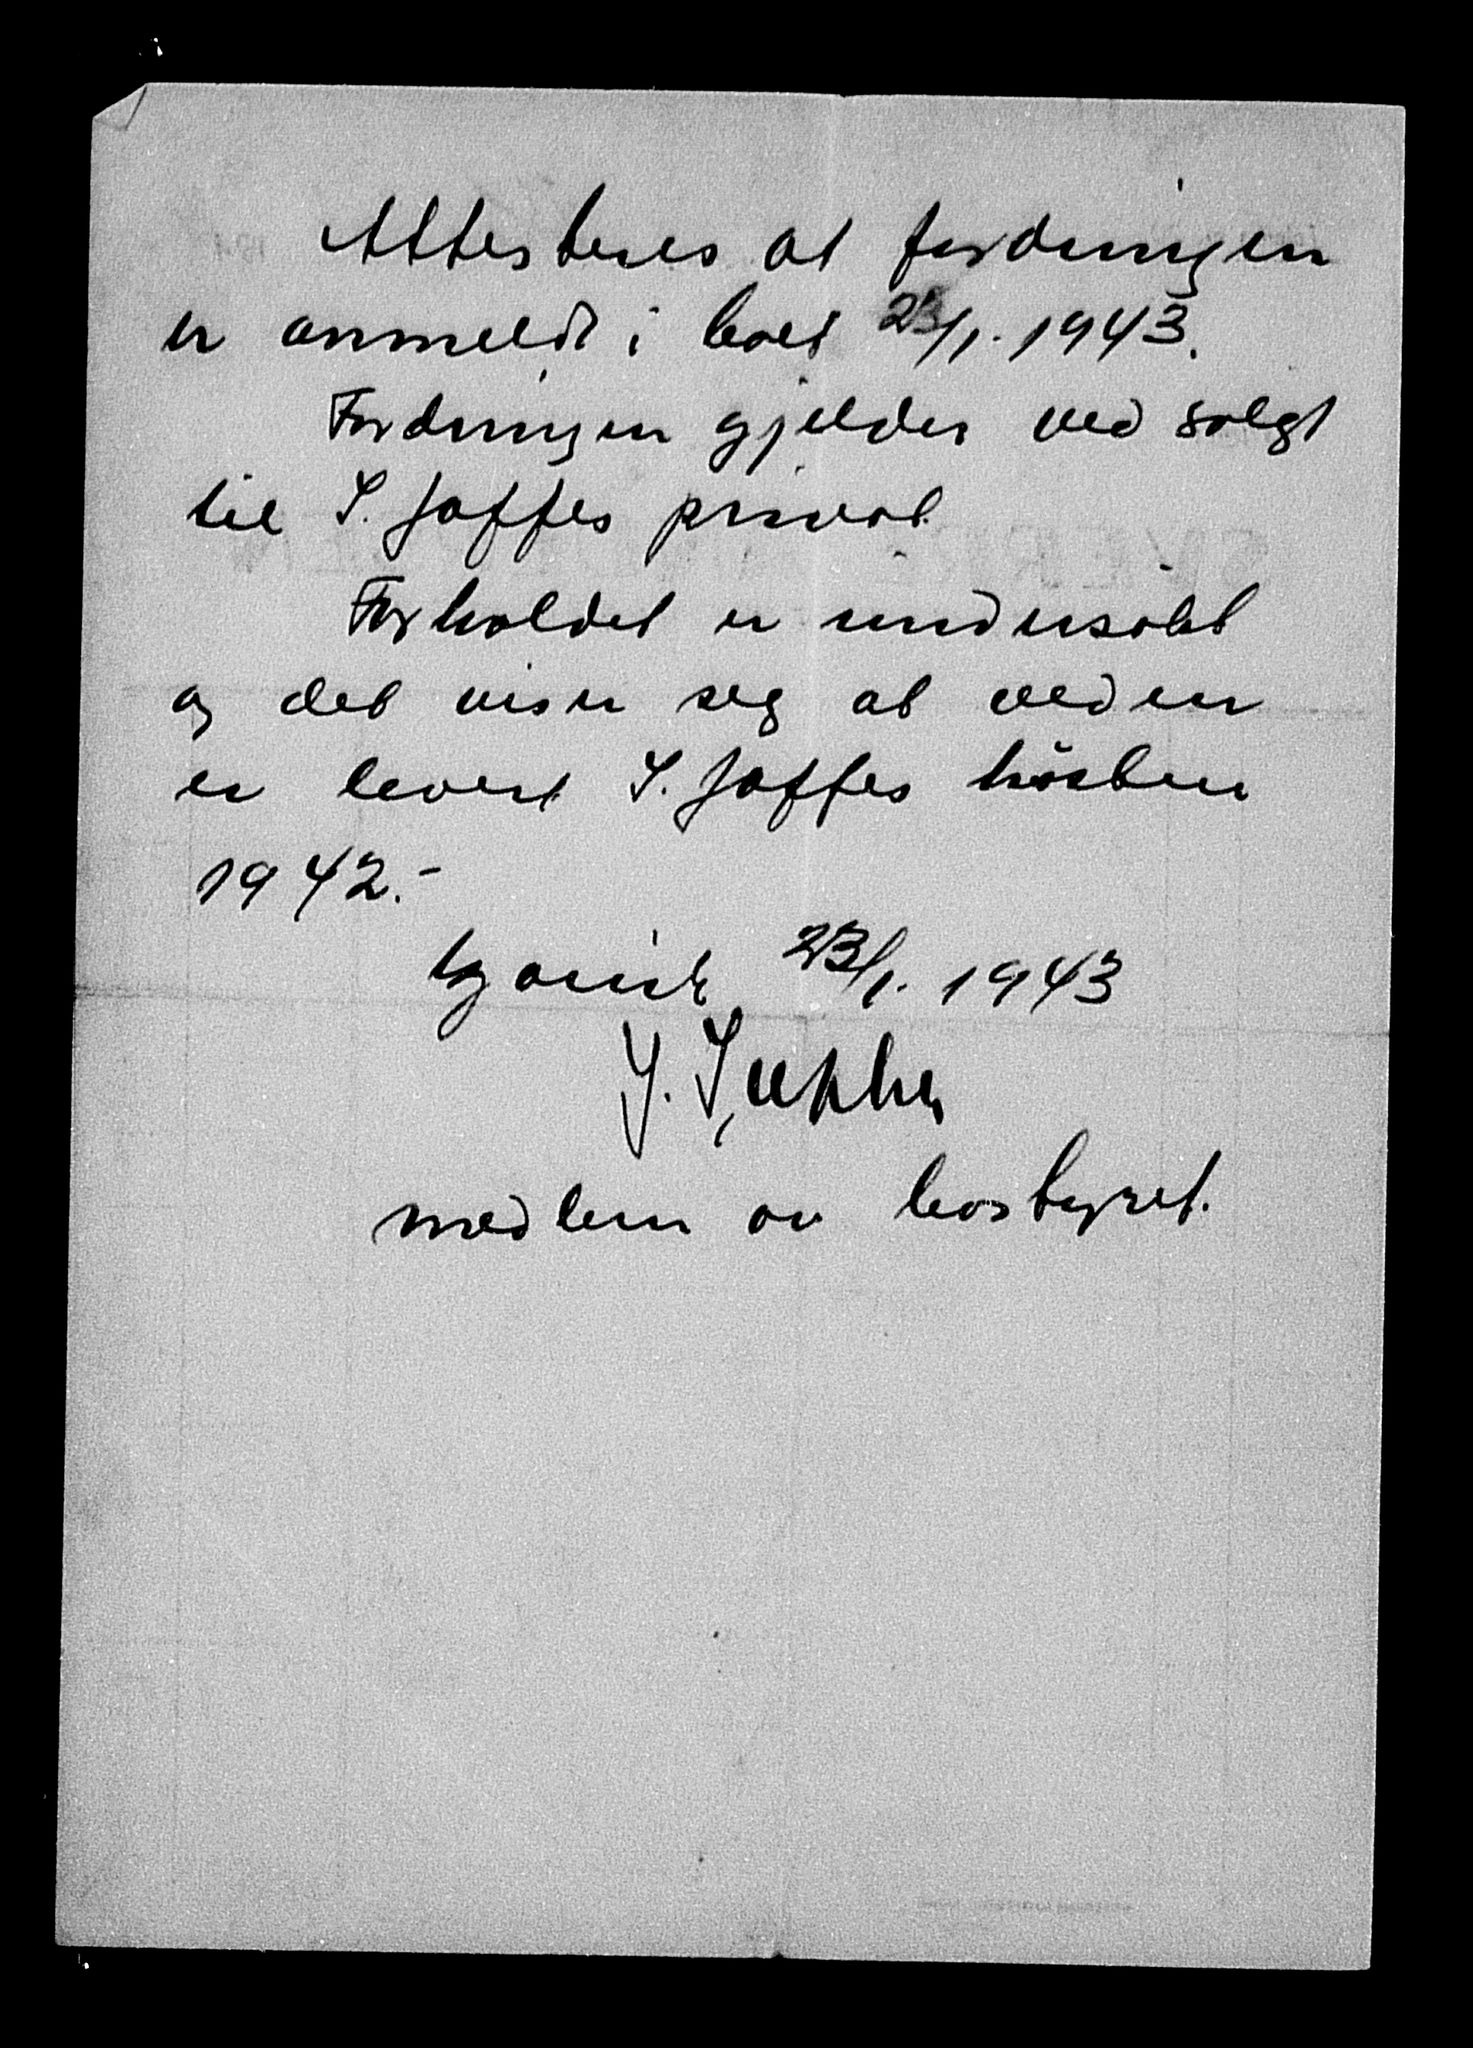 Attesteres at fordringen
er anmeldt i boet 23/1. 1943.
Fordringen gjelder ved solgt
til I. Jaffes privat.
Forholdet er undersökt
og det viser seg at veden
er levert I. Jaffes hösten
1942.-
Gjövik 23/1. 1943
medlem av bostyret.